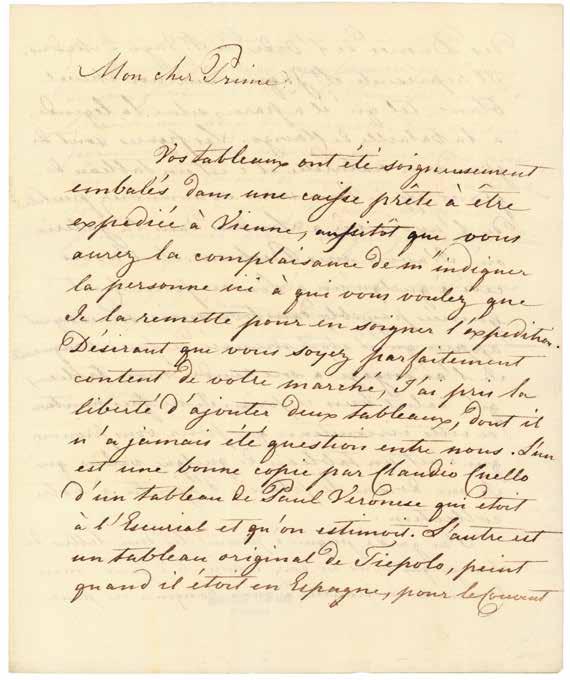 Mon cher Prince
Vos tableaux ont été soigneusement
embalés dans une caisse prête à être
expediée à Vienne, aussitôt que vous
aurez la complaisance de m'indiquer
la personne ici à qui vous voulez que
Je la remette pour en soigner l'expedition.
Désirant que vous soyez parfaitement
content de votre marché, J'ai pris la
liberté d'ajouter deux tableaux, dont il
n'a jamais été question entre nous. L'un
est une bonne copie par Claudio Cuello
d'un tableau de Paul Veronese qui étoit
à l'Escurial et qu'on estimoit. L'autre est
un tableau original de Tiepolo, peint
quand il étoit en Espagne, pour le Couvent